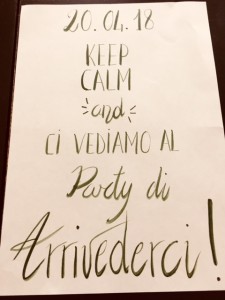 20.04.18
KEEP
CALM
and
CI VEDIAMO AL
Party di
Arrivederci!